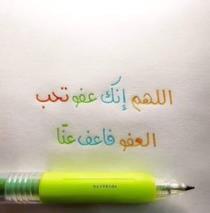 اللهم إنك عفو تحب
العفو فاعف عنّا